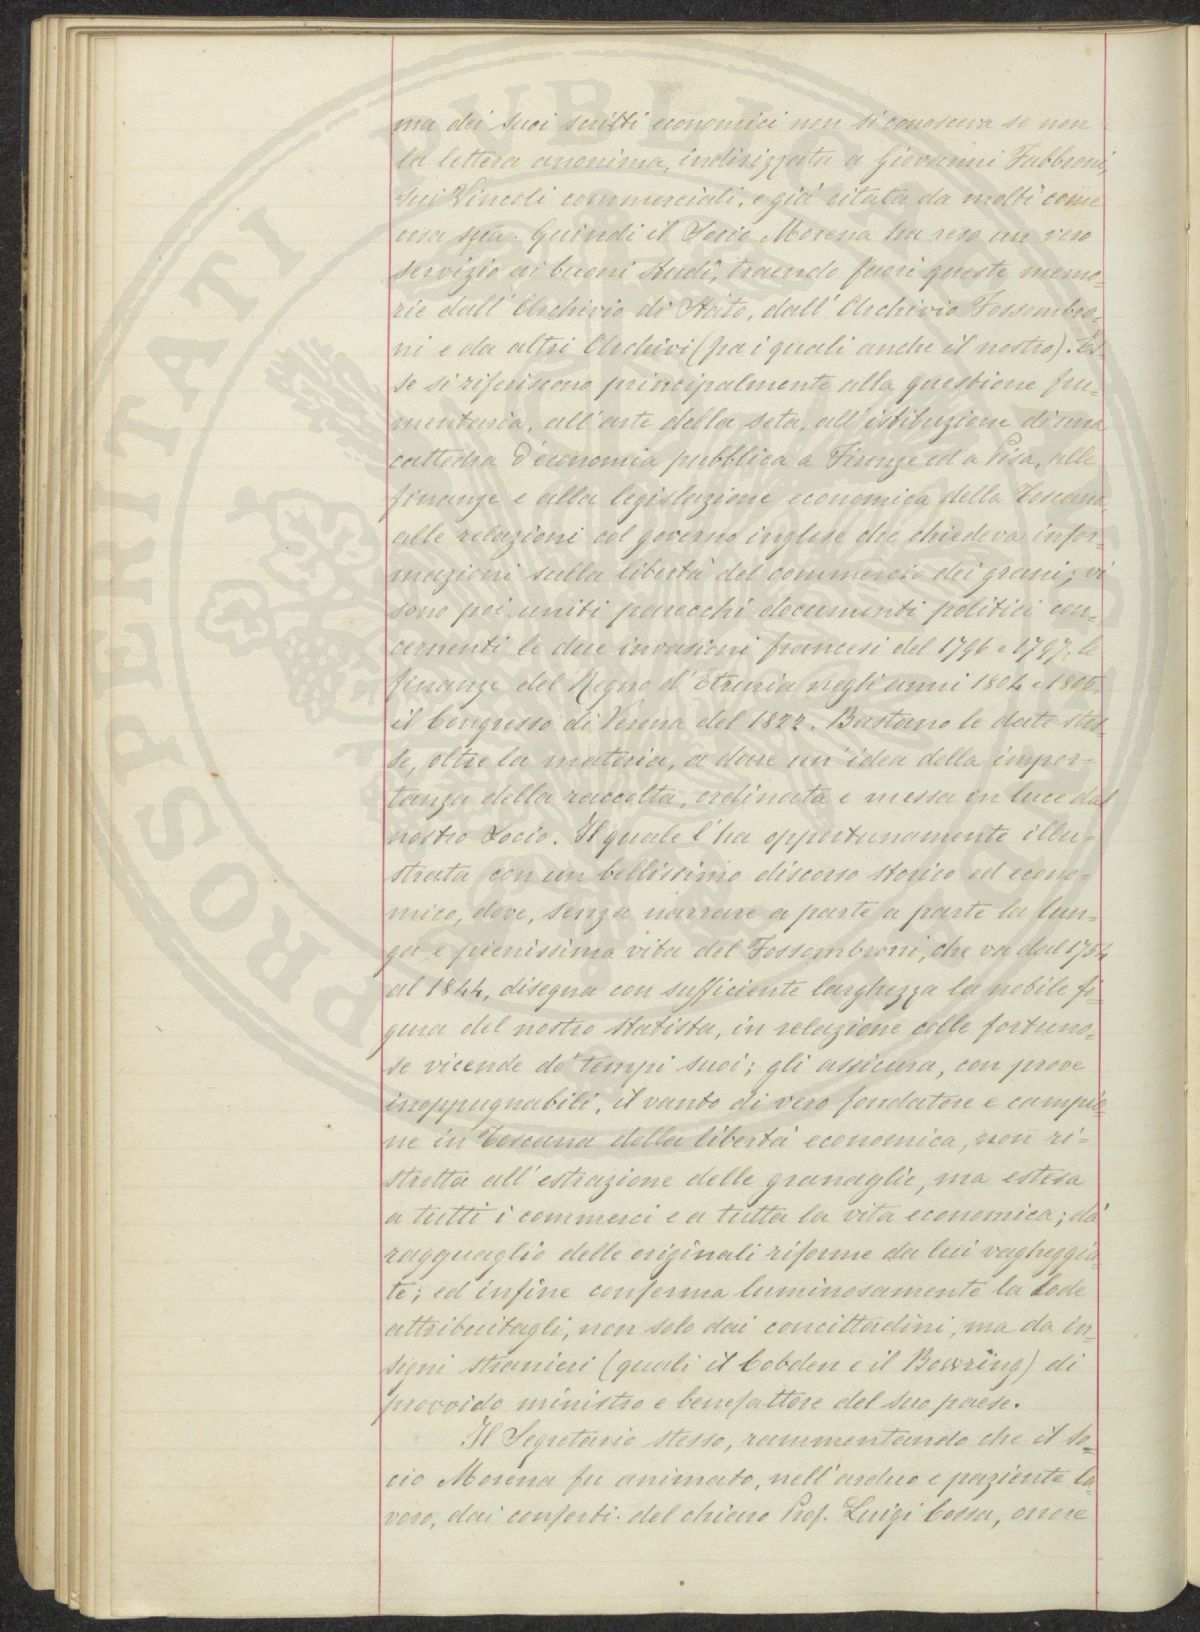 ma dei suoi scritti economici non si conosceva se non
la lettera anonima, indirizzata a Giovanni Fabbroni,
sui Vincoli commerciali, e già citata da molti come
cosa sua. Quindi il Socio Morena ha reso un vero
servizio ai buoni studî, traendo fuori queste memo-
rie dall'Archivio di Stato, dall'Archivio Fossombro-
ni e da altri Archivi (fra i quali anche il nostro). Es-
se si riferiscono principalmente alla questione fru-
mentaria, all'arte della seta, all'istituzione di una
cattedra d'economia pubblica a Firenze ed a Pisa, alle
finanze e alla legislazione economica della Toscana,
alle relazioni col governo inglese che chiedeva infor-
mazioni sulla libertà del commercio dei grani; vi
sono poi uniti parecchi documenti politici con-
cernenti le due invasioni francesi del 1796 e 1797, le
finanze del Regno d'Etruria negli anni 1804 e 1805,
il Congresso di Verona del 1822. Bastano le date stes-
se, oltre la materia, a dare un'idea della impor-
tanza della raccolta, ordinata e messa in luce dal
nostro Socio. Il quale l'ha opportunamente illu-
strata con un bellissimo discorso storico ed econo-
mico, dove, senza narrare a parte a parte la lun-
ga e pienissima vita del Fossombroni, che va dal 1754
al 1844, disegna con sufficiente larghezza la nobile fi-
gura del nostro statista, in relazione colle fortuno-
se vicende de' tempi suoi; gli assicura, con prove
inoppugnabili, il vanto di vero fondatore e campio-
ne in Toscana della libertà economica, non ri-
stretta all'estrazione delle granaglie, ma estesa
a tutti i commerci e a tutta la vita economica; dà
ragguaglio delle originali riforme da lui vagheggia-
te; ed infine conferma luminosamente la lode
attribuitagli, non solo dai concittadini, ma da in-
signi stranieri (quali il Cobden e il Bowring) di
provvido ministro e benefattore del suo paese.
Il Segretario stesso, rammentando che il So-
cio Morena fu animato, nell'arduo e paziente la-
voro, dai conforti del chiaro Prof. Luigi Cossa, onore
PROSPERITATI